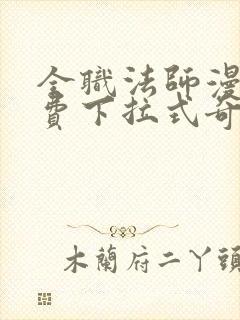 全職法師漫
費下拉式奇
木蘭府二丫頭